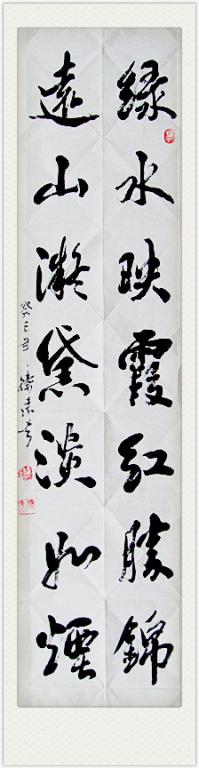 綠水映霞紅勝錦
遠山凝黛淡如煙
癸巳年